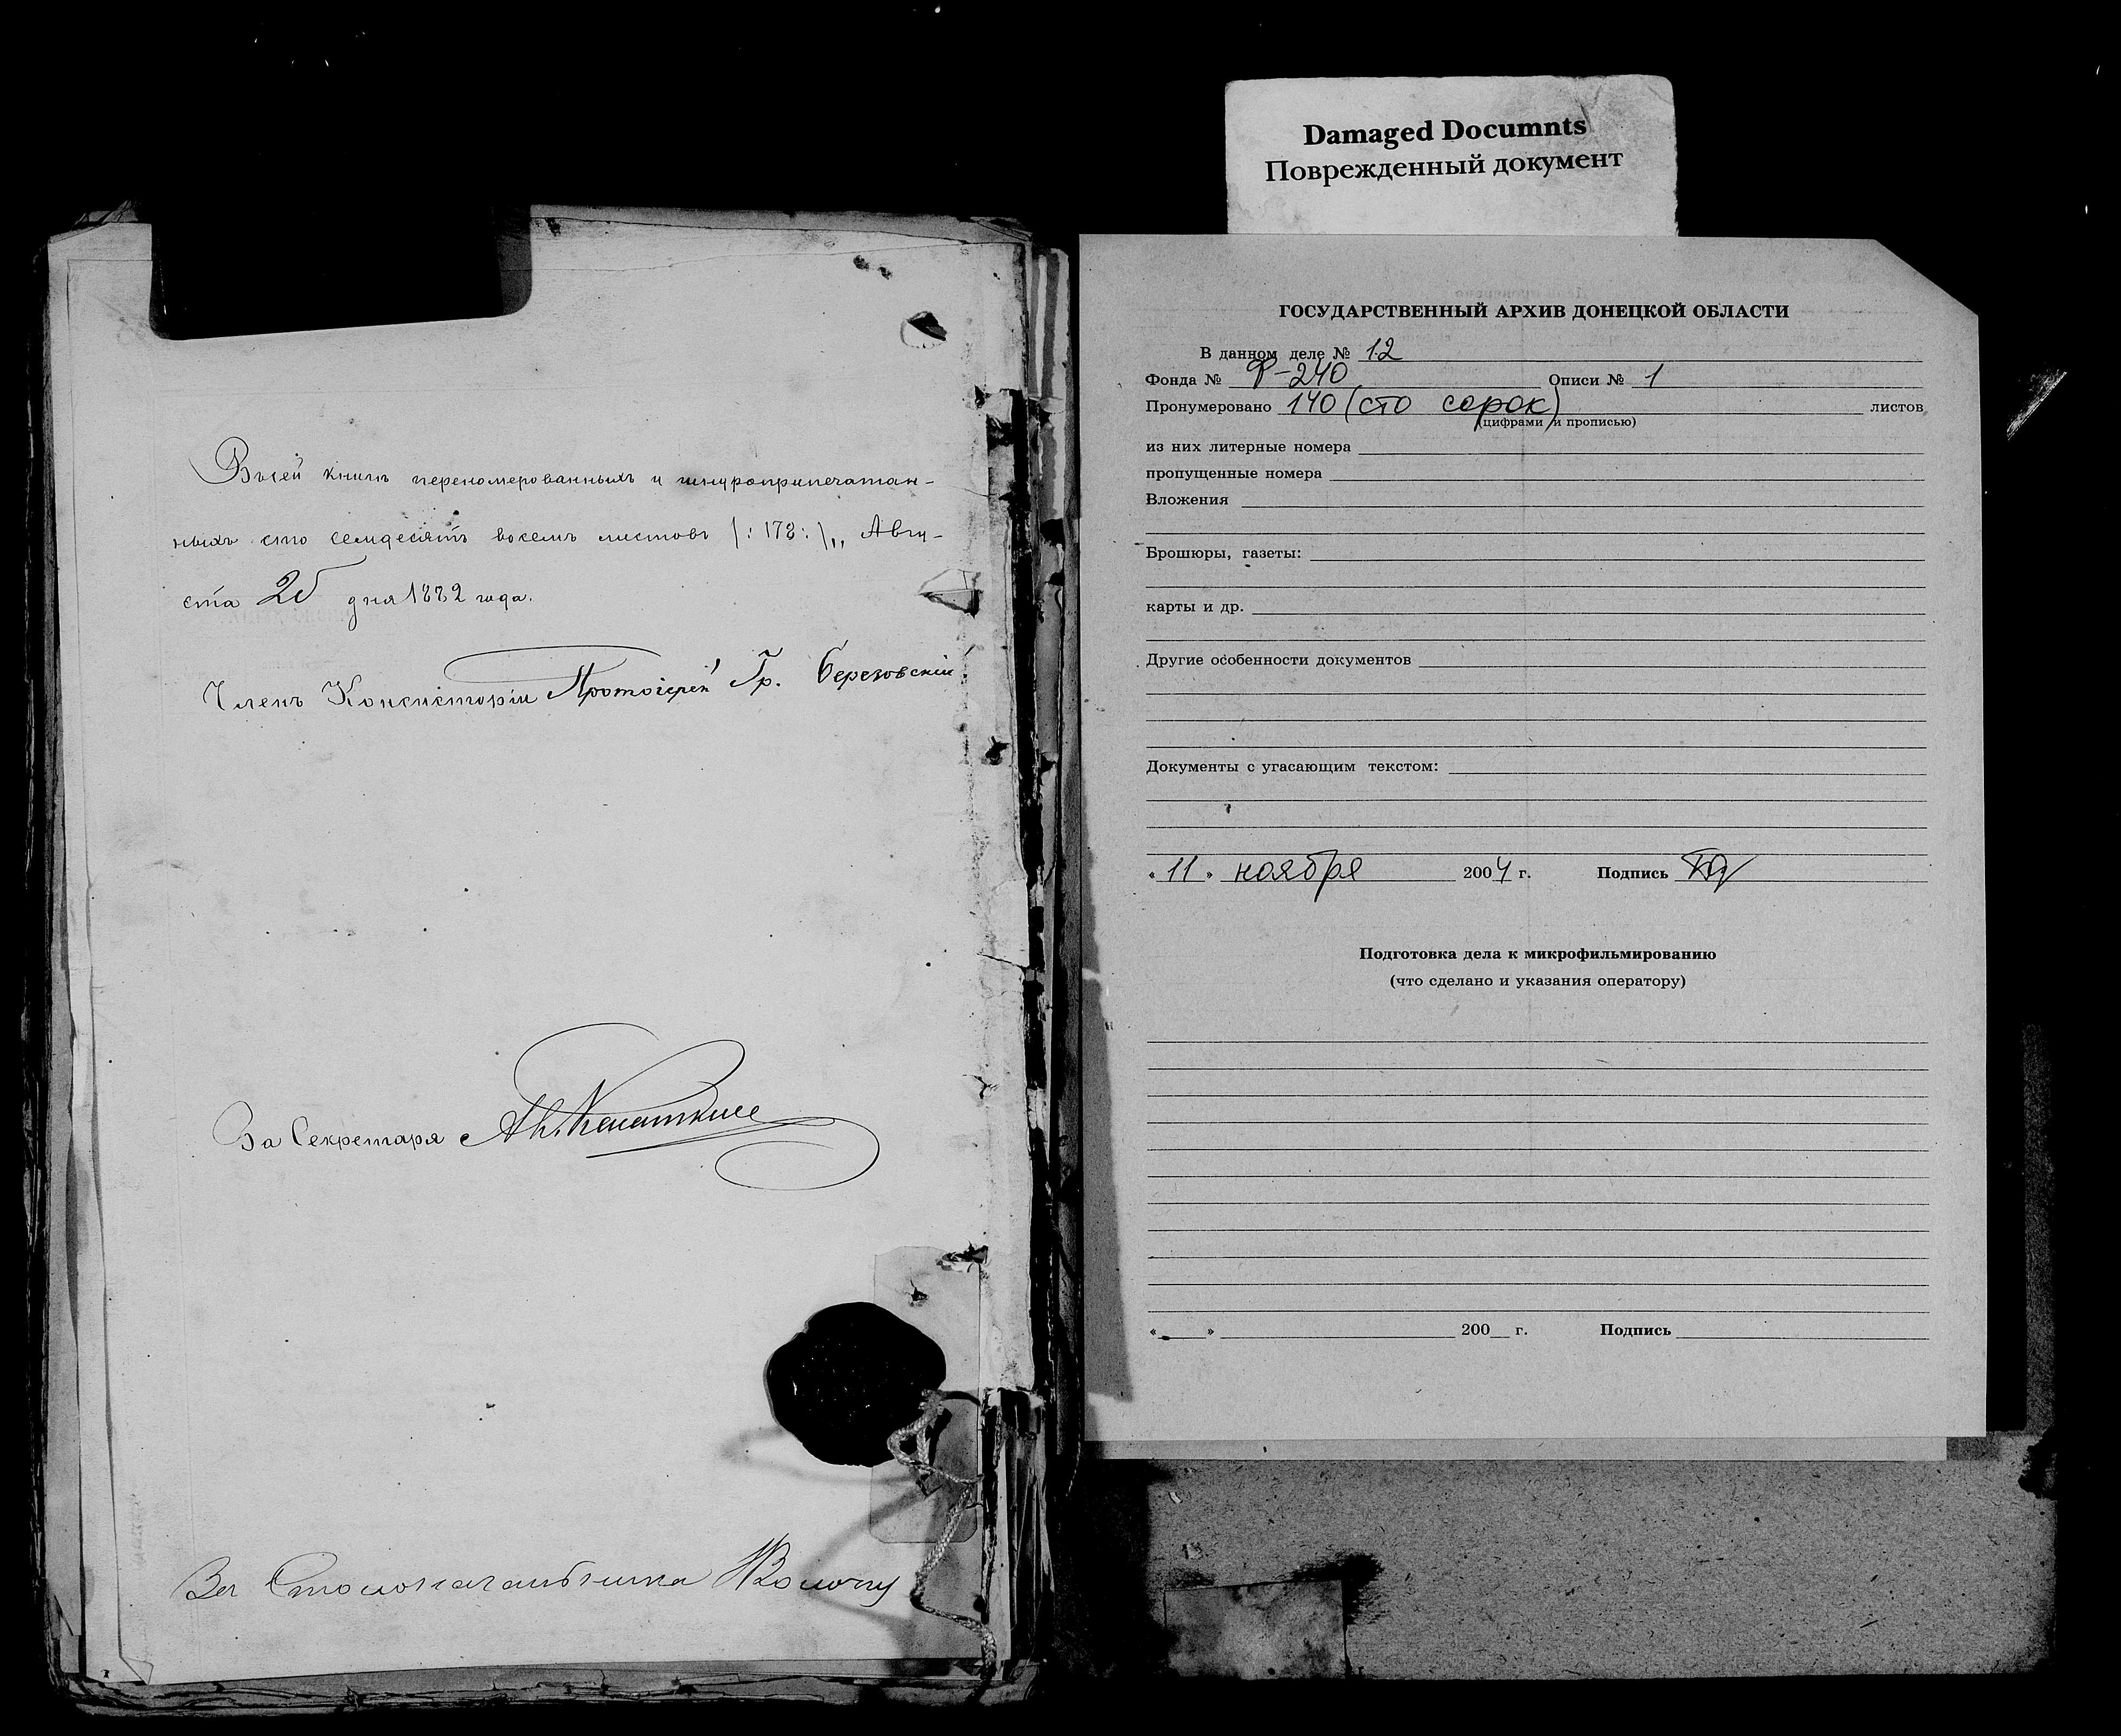 Въсей книгѣ переномерованныхъ и шнуроприпечатан-
ныхъ сто семдесятъ восемь листовъ /:178:/,, Авгу-
ста 25 дня 1882 года.
Членъ Консисторіи Протоіерей Гр. Березовскій
За Секретаря
За Столоначальника
Damaged Documnts
Поврежденный документ
ГОСУДАРСТВЕННЫЙ АРХИВ ДОНЕЦКОЙ ОБЛАСТИ
В данном деле № 12
Фонда № Ф-240 Описи № 1
Пронумеровано 140 (сто сорок) листов
(цифрами и прописью)
из них литерные номера
пропущенные номера
Вложения
Брошюры, газеты:
карты и др.
Другие особенности документов
Документы с угасающим текстом:
« 11 » ноября 2004 г. Подпись
Подготовка дела к микрофильмированию
(что сделано и указания оператору)
« » 200 г. Подпись